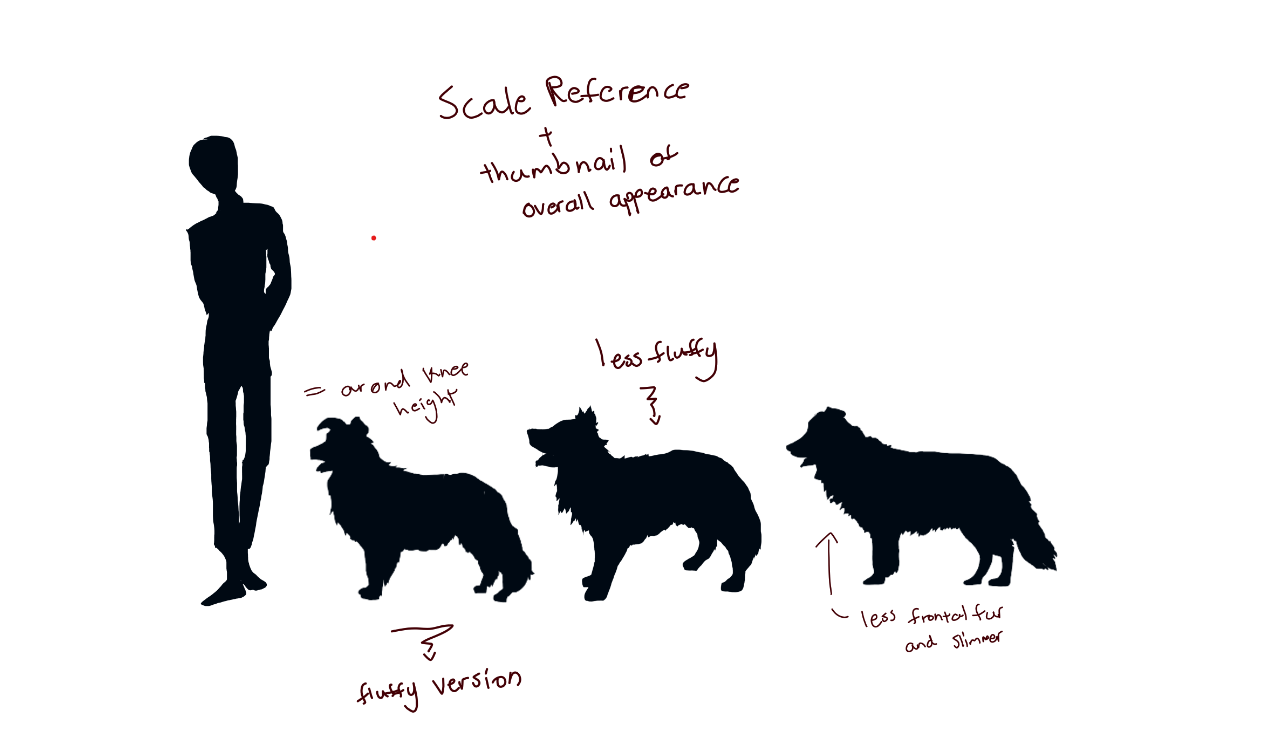 Scale Reference
+
thumbnail of
overall appearance
= arond knee
height
less fluffy
fluffy version
less frontal fur
and slimmer